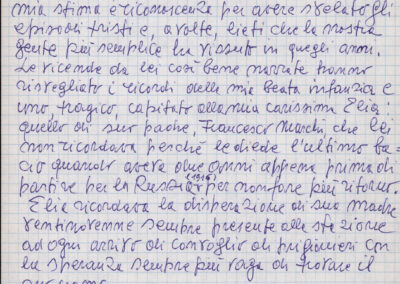 mia stima e riconoscenza per avere svelato gli
episodi tristi e, a volte, lieti che la nostra
gente più semplice ha vissuto in quegli anni.
Le vicende da lei così bene narrate hanno
risvegliato i ricordi della mia beata infanzia e
uno, tragico, capitato alla mia carissima Elia:
quello di suo padre, Francesco Marchi, che lei
non ricordava perché le diede l'ultimo ba-
cio quando aveva due anni appena prima di
partire per la Russia per non fare più ritorno.
Elia ricordava la disperazione di sua madre
ventinovenne sempre presente alla stazione
ad ogni arrivo di convoglio di prigionieri con
la speranza sempre più vaga di trovare il